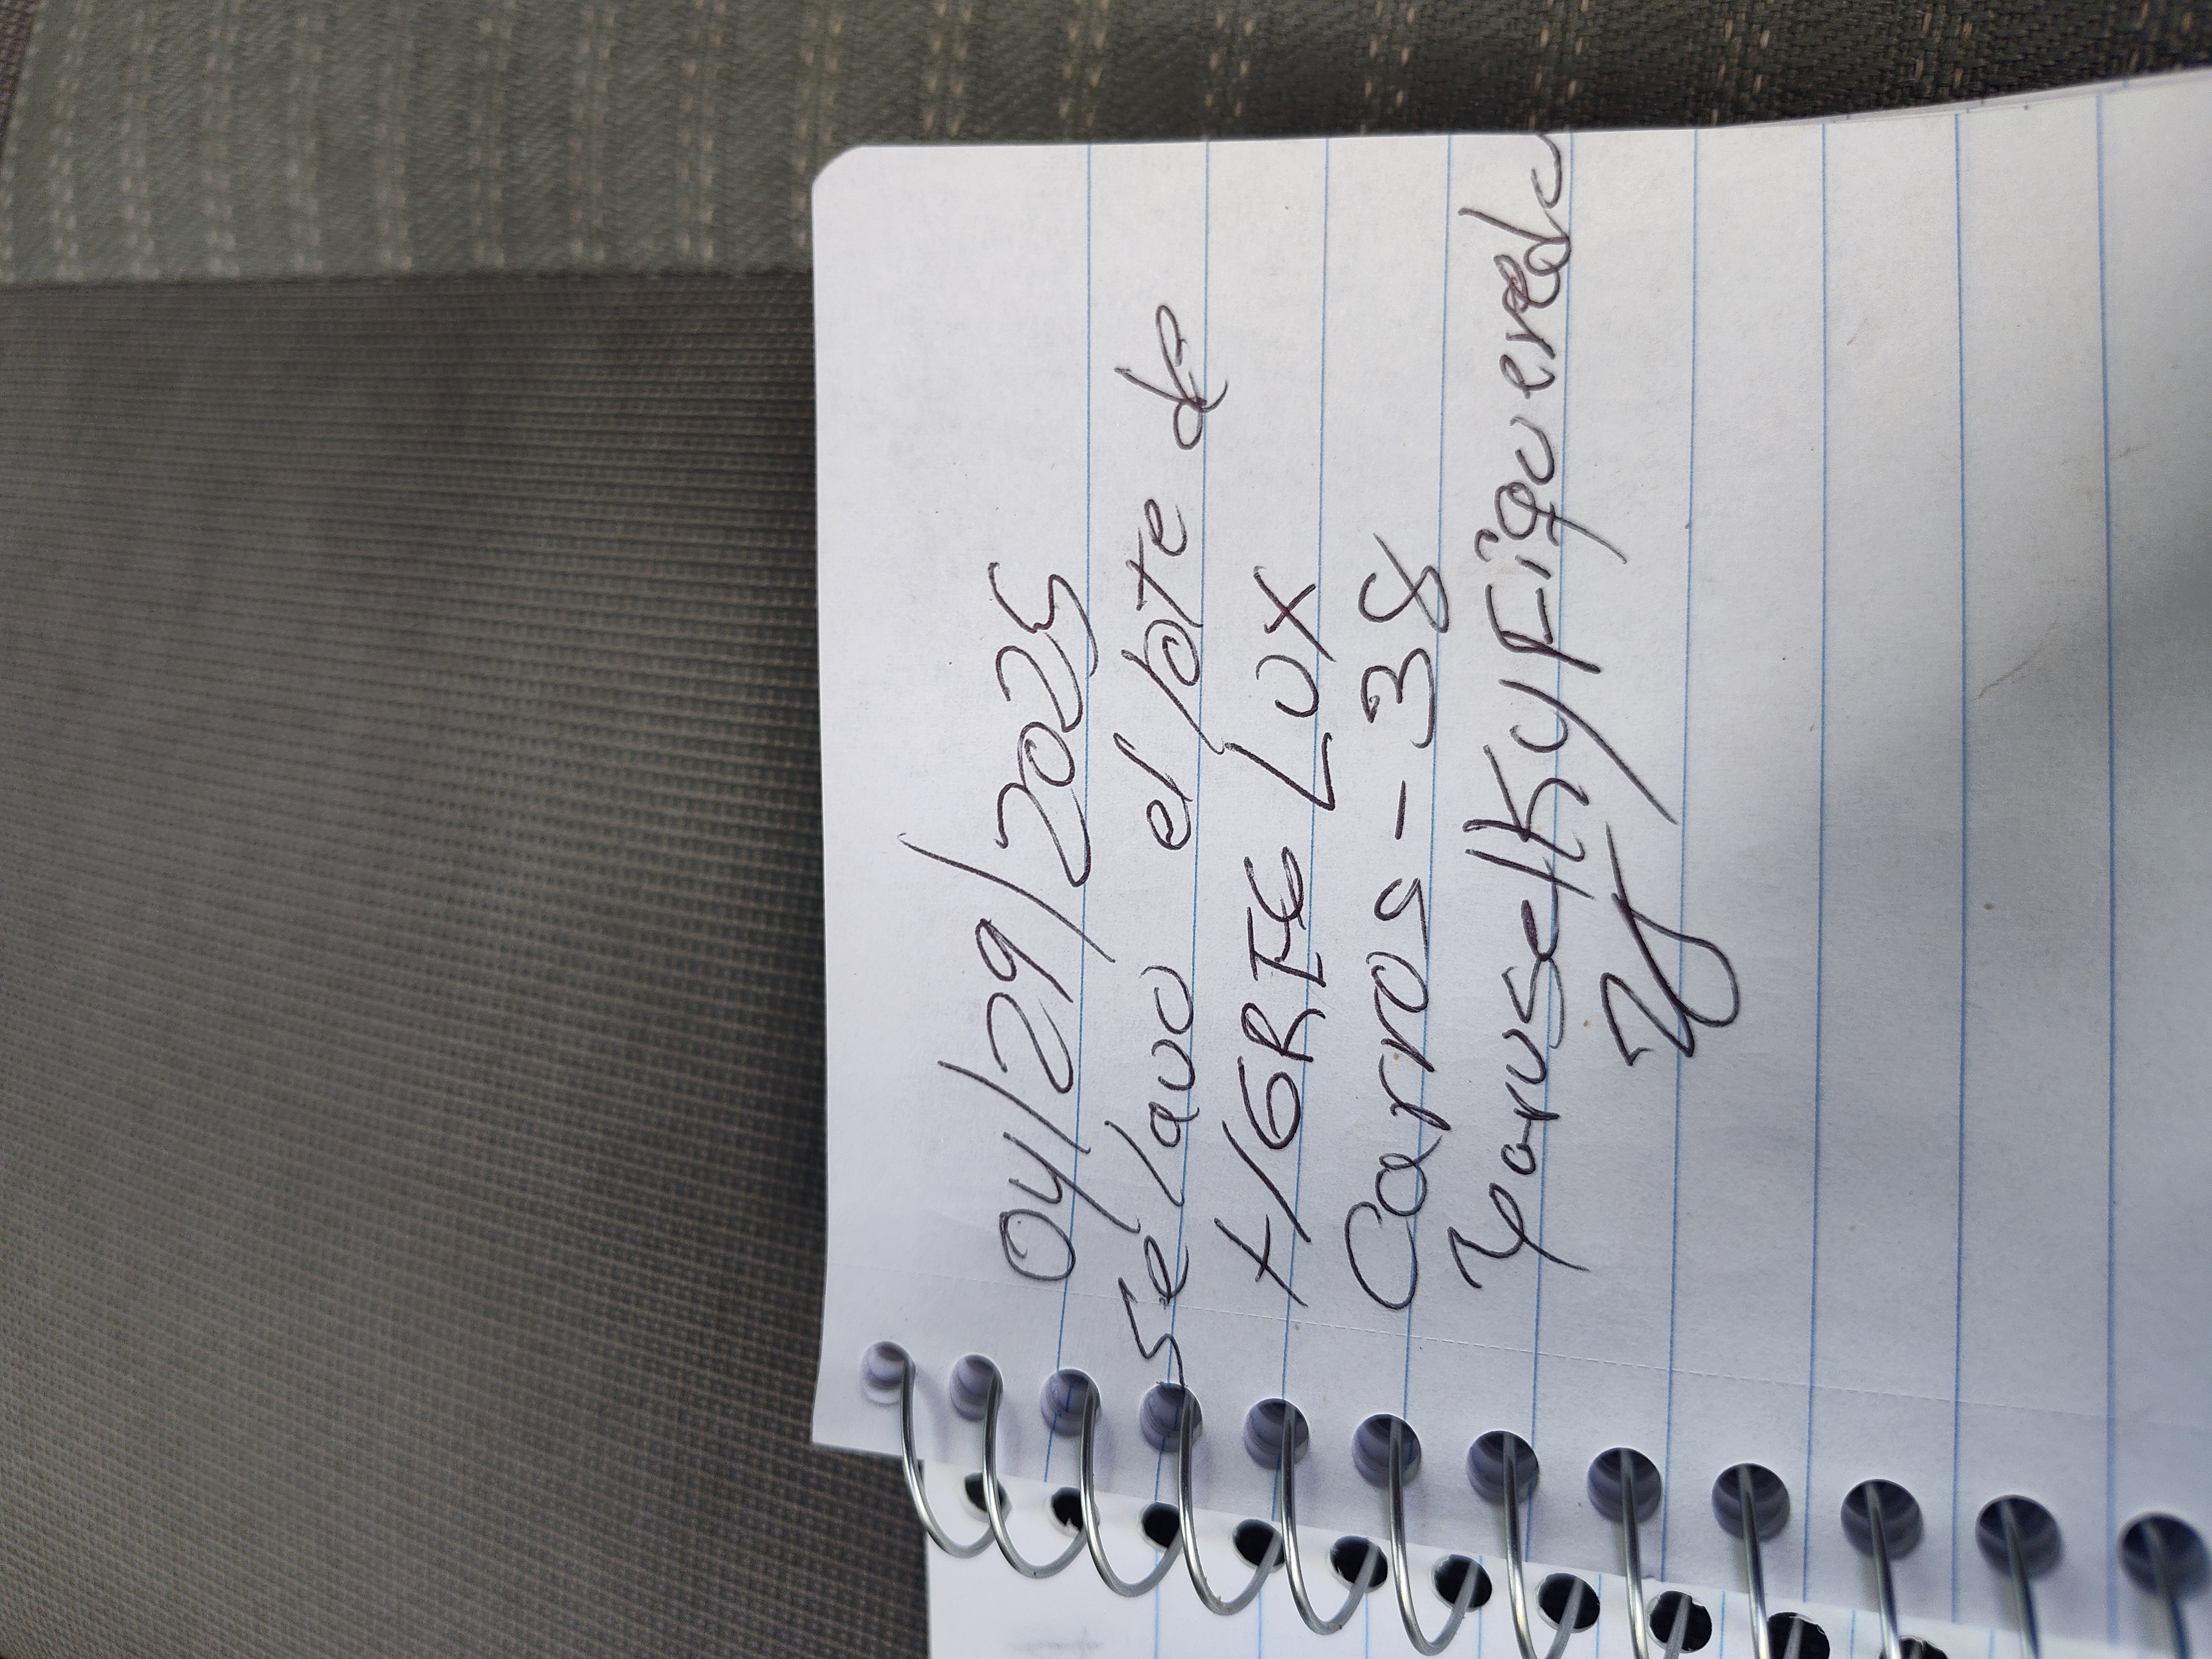 04/29/2025
se lavo el lote de
x/GRIG LUX
Carros - 38
Yaruselky Figueredo